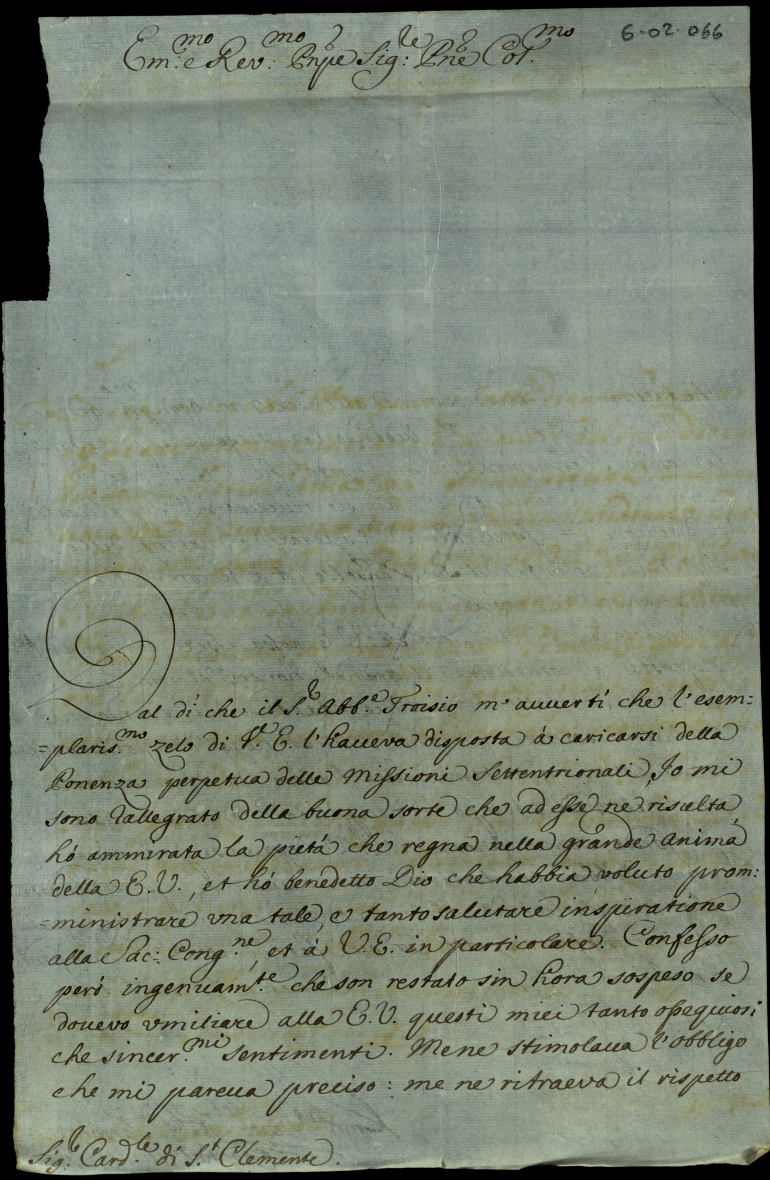 6-02-066
Em.mo e Rev.mo Pnpe Sig.re Pne Col.mo
Dal dì che il S.r Abb.e Troisio m'auuertì che l'esem=
=plaris.mo zelo di V.E. l'haueva disposta à caricarsi della
Ponenza perpetua delle Missioni Settentrionali, Io mi
sono rallegrato della buona sorte che ad esse ne risulta,
hò ammirata la pietà che regna nella grande anima
della E.V., et hò benedetto Dio che habbia voluto prom=
=ministrare vna tale, e tanto salutare inspiratione
alla Sac: Cong.ne, et à V.E. in particolare. Confesso
però ingenuam.te che son restato sin hora sospeso se
douevo vmiliare alla E.V. questi miei tanto ossequiosi
che sincer.mi sentimenti. Mene stimolaua l'obbligo
che mi pareua preciso: me ne ritraeva il rispetto
Sig.r Card.le di S.t Clemente.